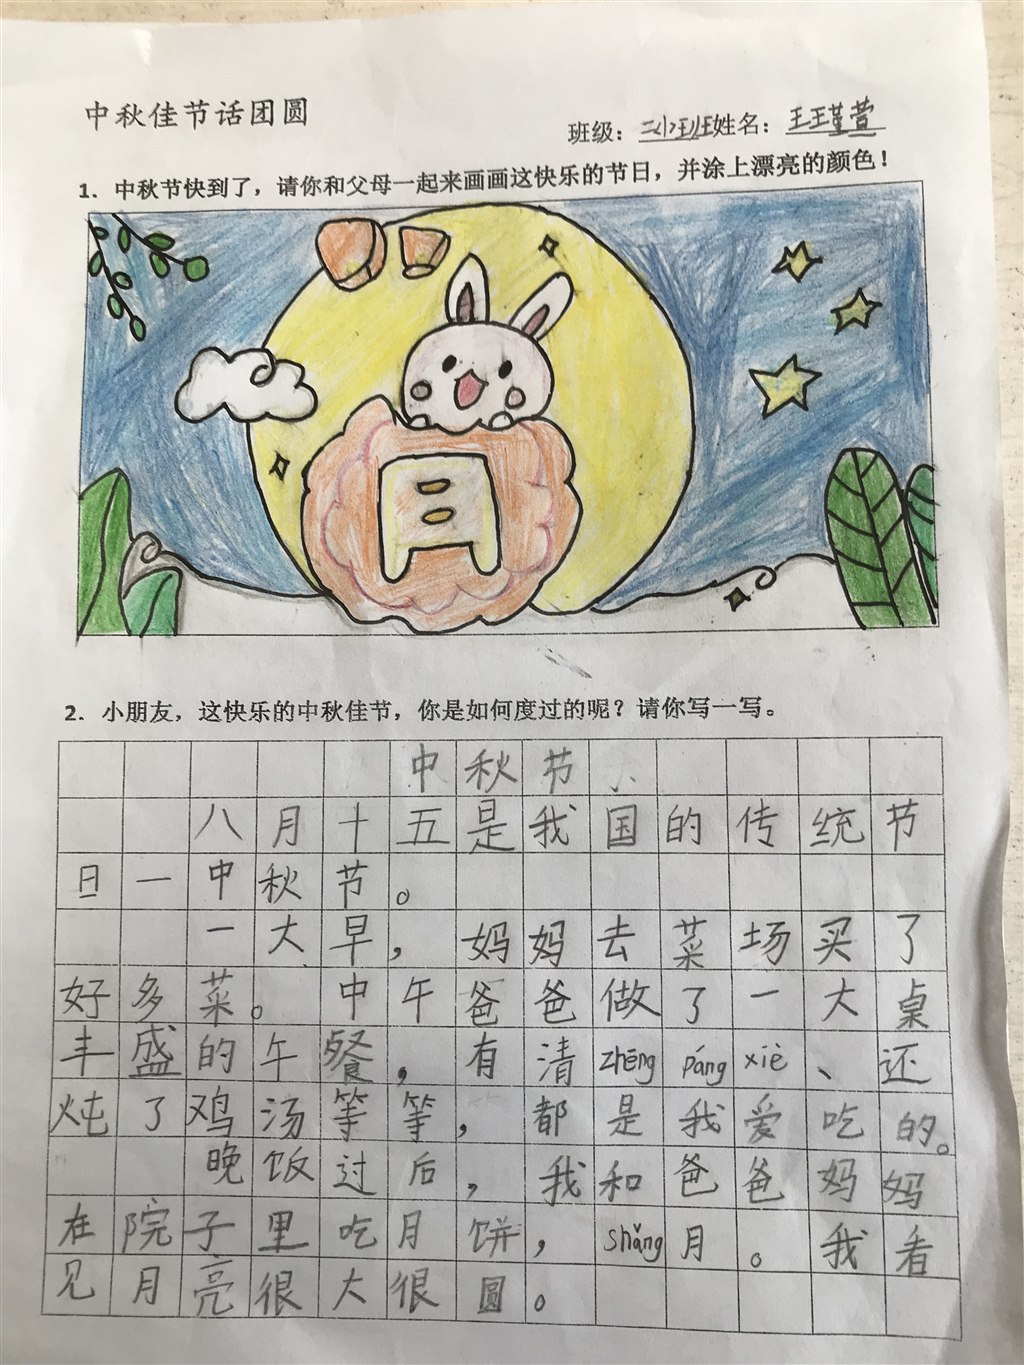 中秋佳节话团圆
班级：二小班姓名：王王堇萱
1．中秋节快到了，请你和父母一起来画画这快乐的节日，并涂上漂亮的颜色！
月
2．小朋友，这快乐的中秋佳节，你是如何度过的呢？请你写一写。
中秋节
八月十五是我国的传统节
日一中秋节。
一大早，妈妈去菜场买了
好多菜。中午爸爸做了一大桌
丰盛的午餐，有清zhēng páng xiè、还
炖了鸡汤等等，都是我爱吃的。
晚饭过后，我和爸爸妈妈
在院子里吃月饼，shǎng月。我看
见月亮很大很圆。